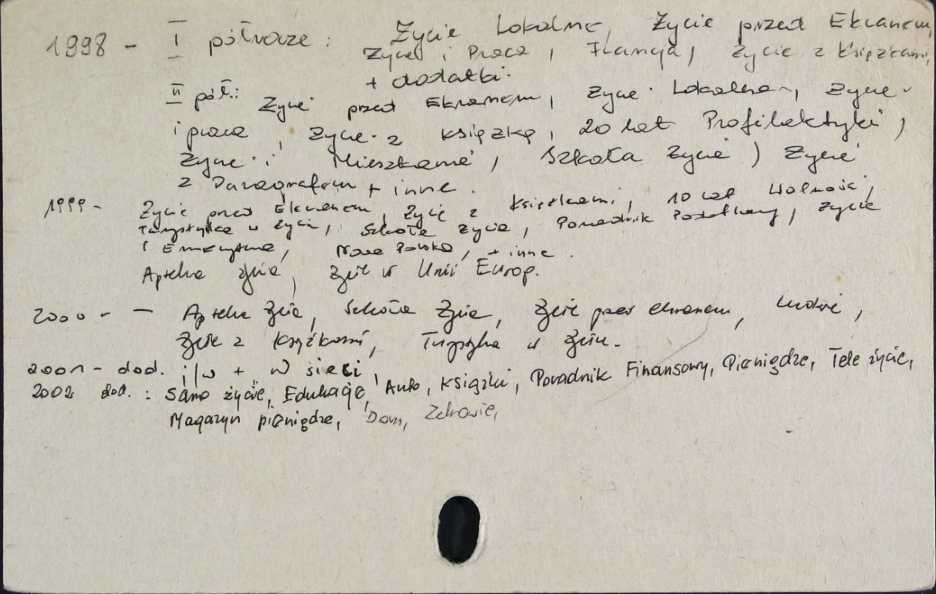 1998 - I półrocze: Życie Lokalne, Życie przed Ekranem,
Życie i Praca, Francja, Życie z Książkami,
+ dodatki.
II pół.: Życie przed Ekranem, Życie Lokalne, Życie
i praca, Życie z książką, 20 lat Profilaktyki,
Życie i Mieszkanie, Szkoła Życie, Życie
z Paragrafem + inne.
1999 - Życie przed Ekranem, Życie z Książkami, 10 lat Wolności,
Turystyka w Życiu, Szkoła Życia, Poradnik Podatkowy, Życie
i Emerytura, Nowa Polska, + inne.
Apteka życia, Życie w Unii Europ.
2000 - - Apteka życia, Szkoła Życia, Życie przed ekranem, Ludzie,
Życie z Książkami, Turystyka w życiu.
2001 - dod. i/w + W sieci
2002 dod. : Samo życie, Edukacje, Auto, Książki, Poradnik Finansowy, Pieniądze, Tele życie,
Magazyn pieniądze, Dom, Zdrowie,